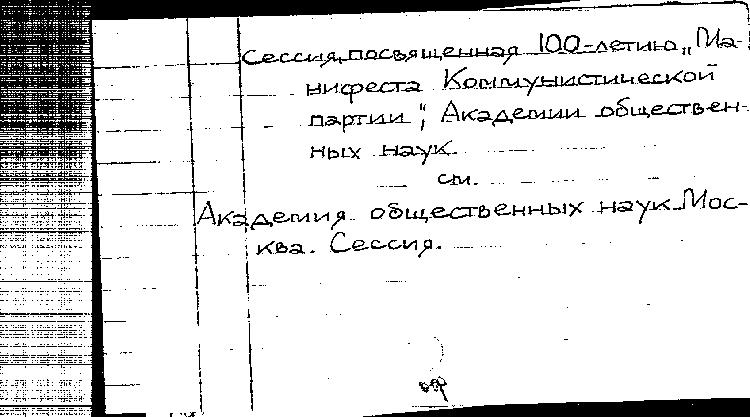 Сессия, посвященная 100-летию „Ма-
нифеста Коммунистической
партии", Академии обществен-
ных наук.
см.
Академия общественных наук. Мос-
ква. Сессия.